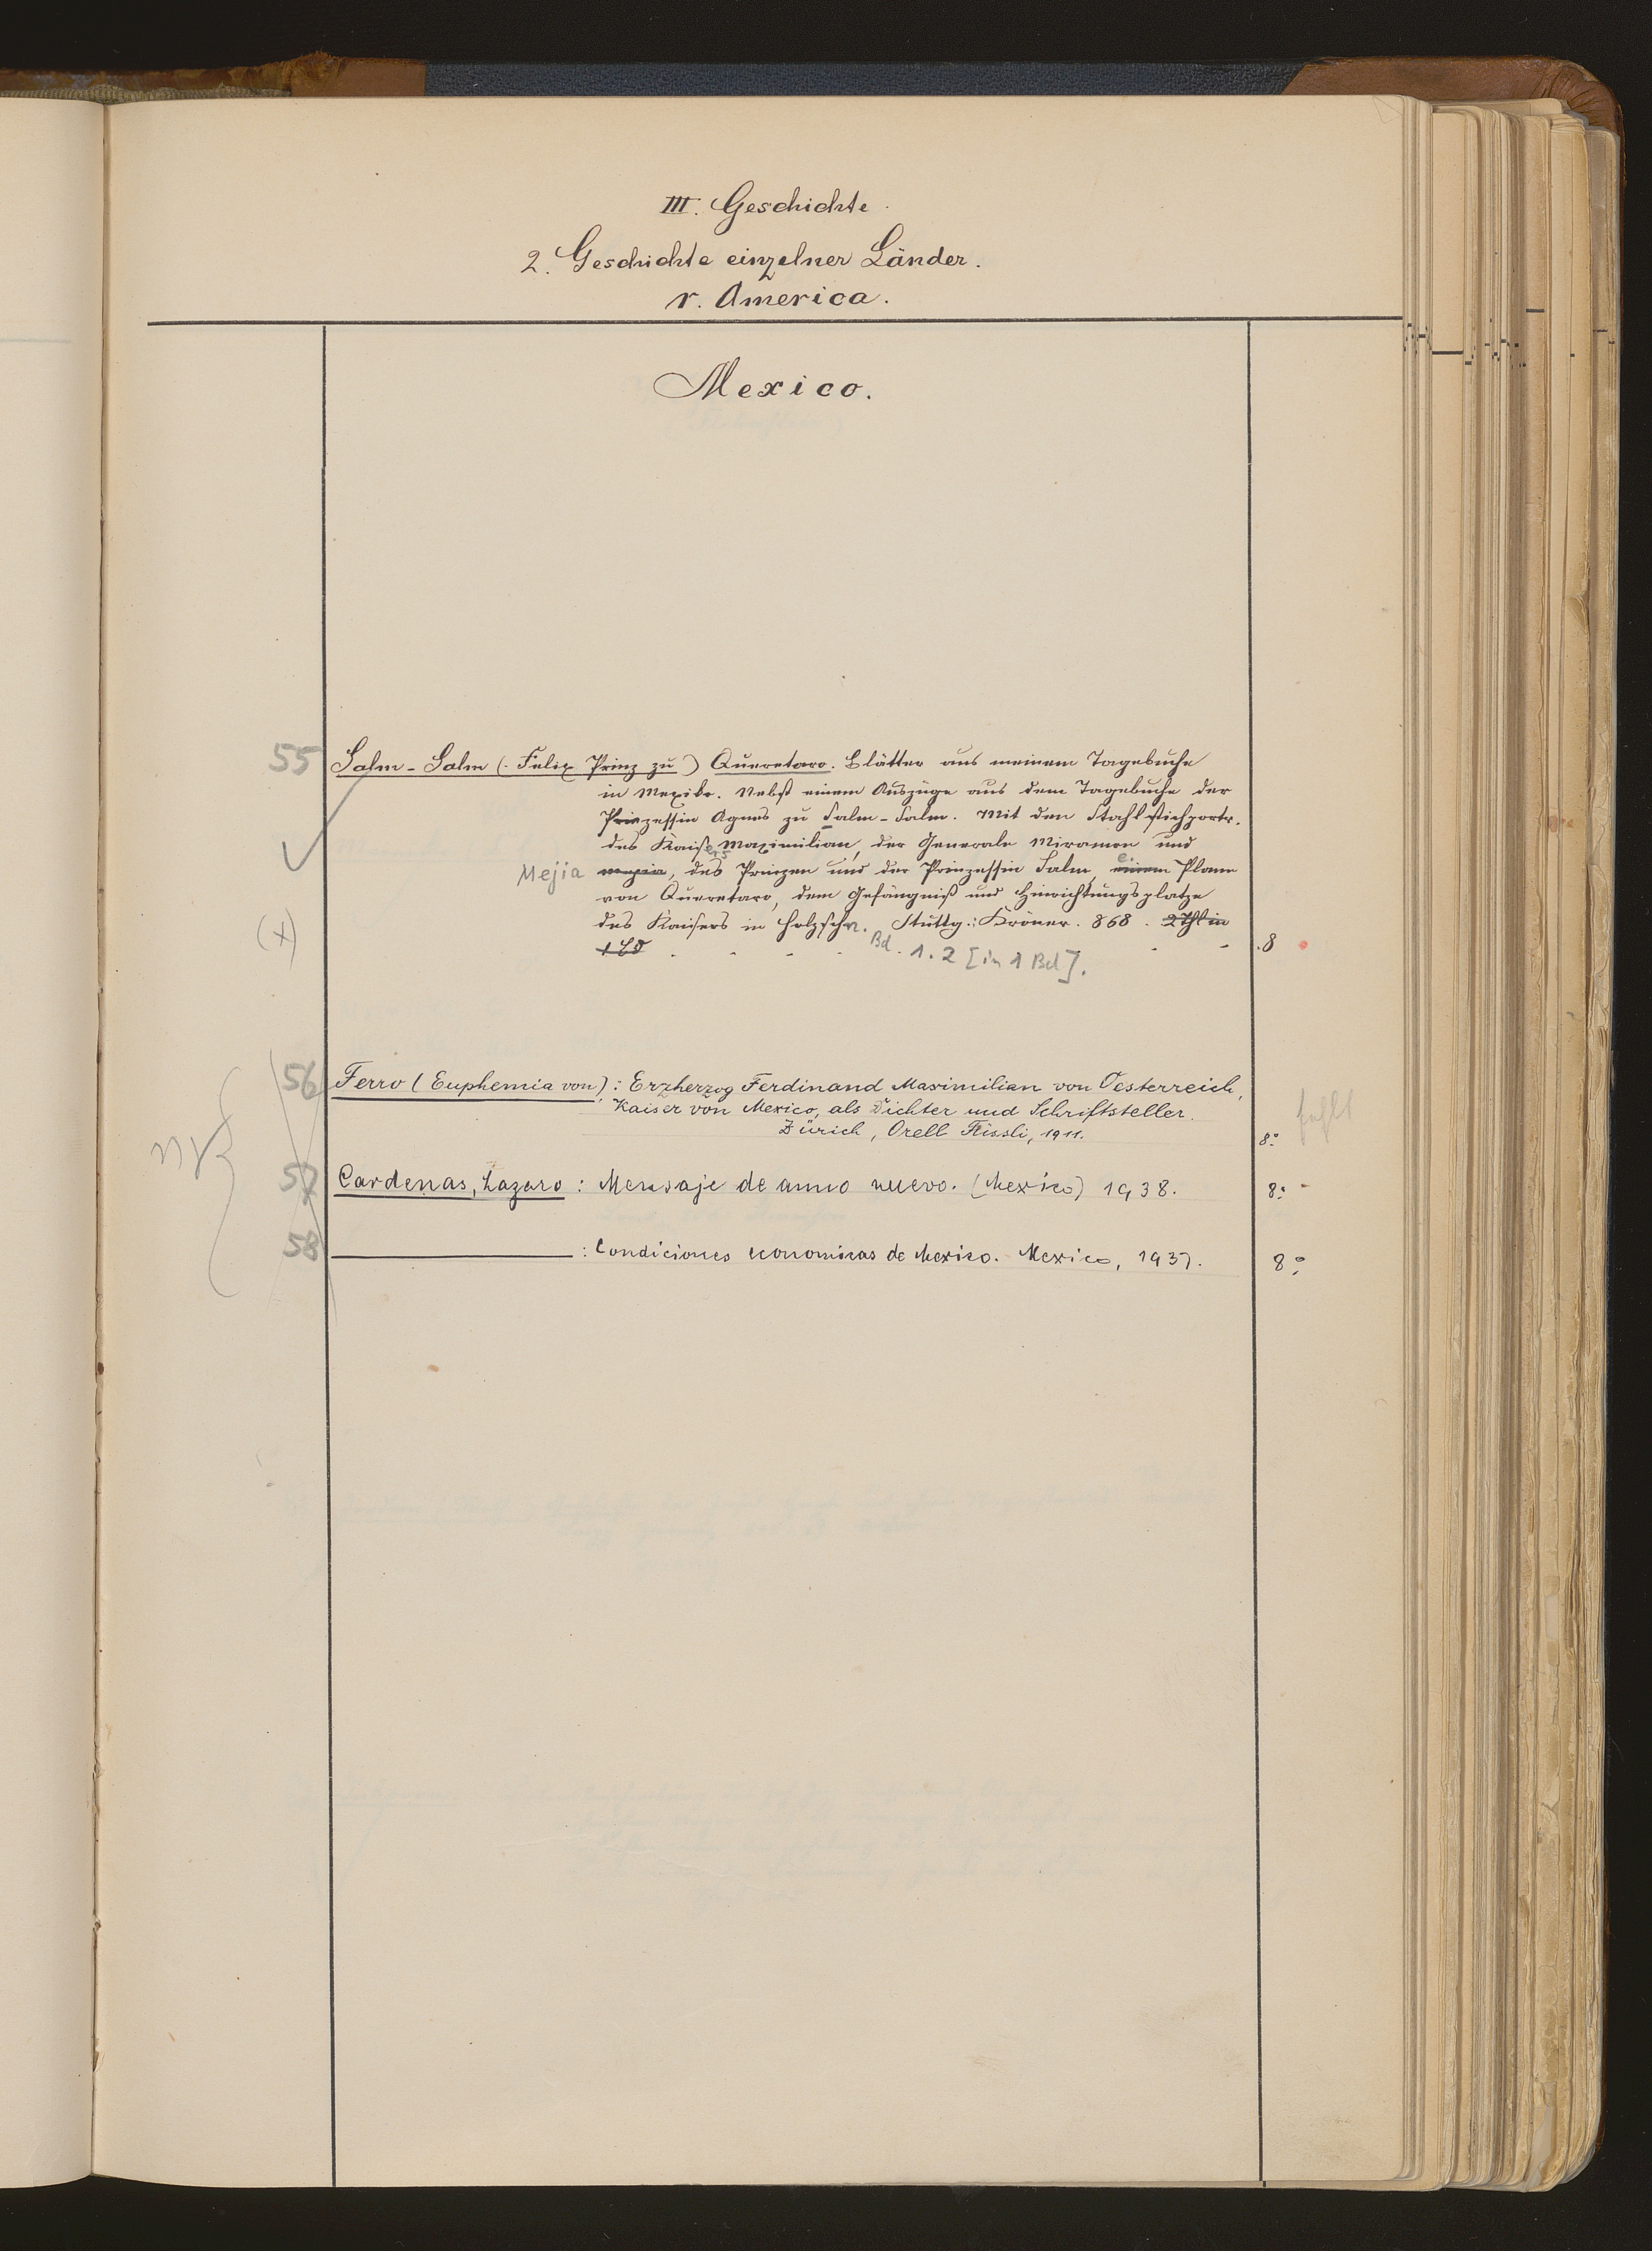 III. Geschichte.
2. Geschichte einzelner Länder.
r. America.
Mexico.
55 Salm-Salm (Felix Prinz zu) Queretaro. Blätter aus meinem Tagebuche
in Mexiko. Nebst einem Auszuge aus dem Tagebuche der
Prinzessin Agnes zu Salm-Salm. Mit den Stahlstichportr.
des Kaisers Maximilian, der Generale Miramon und
Mejia mejia, des Prinzen und der Prinzessin Salm, e. einem Plane
von Queretaro, dem Gefängniß und Hinrichtungsplatze
(x) des Kaisers in Holzschn. Stuttg.: Kröner. 868. 2 Thl in
1 Bd Bd. 1.2 [in 1 Bd]. 8
56 Ferro (Euphemia von): Erzherzog Ferdinand Maximilian von Oesterreich,
Kaiser von Mexico, als Dichter und Schriftsteller. fehlt
Zürich, Orell Füssli, 1911. 8:°
57 Cardenas, Lazaro: Mensaje de anno nuevo. (Mexico) 1938. 8:°
58 ———: Condiciones economicas de Mexico. Mexico, 1937. 8:°